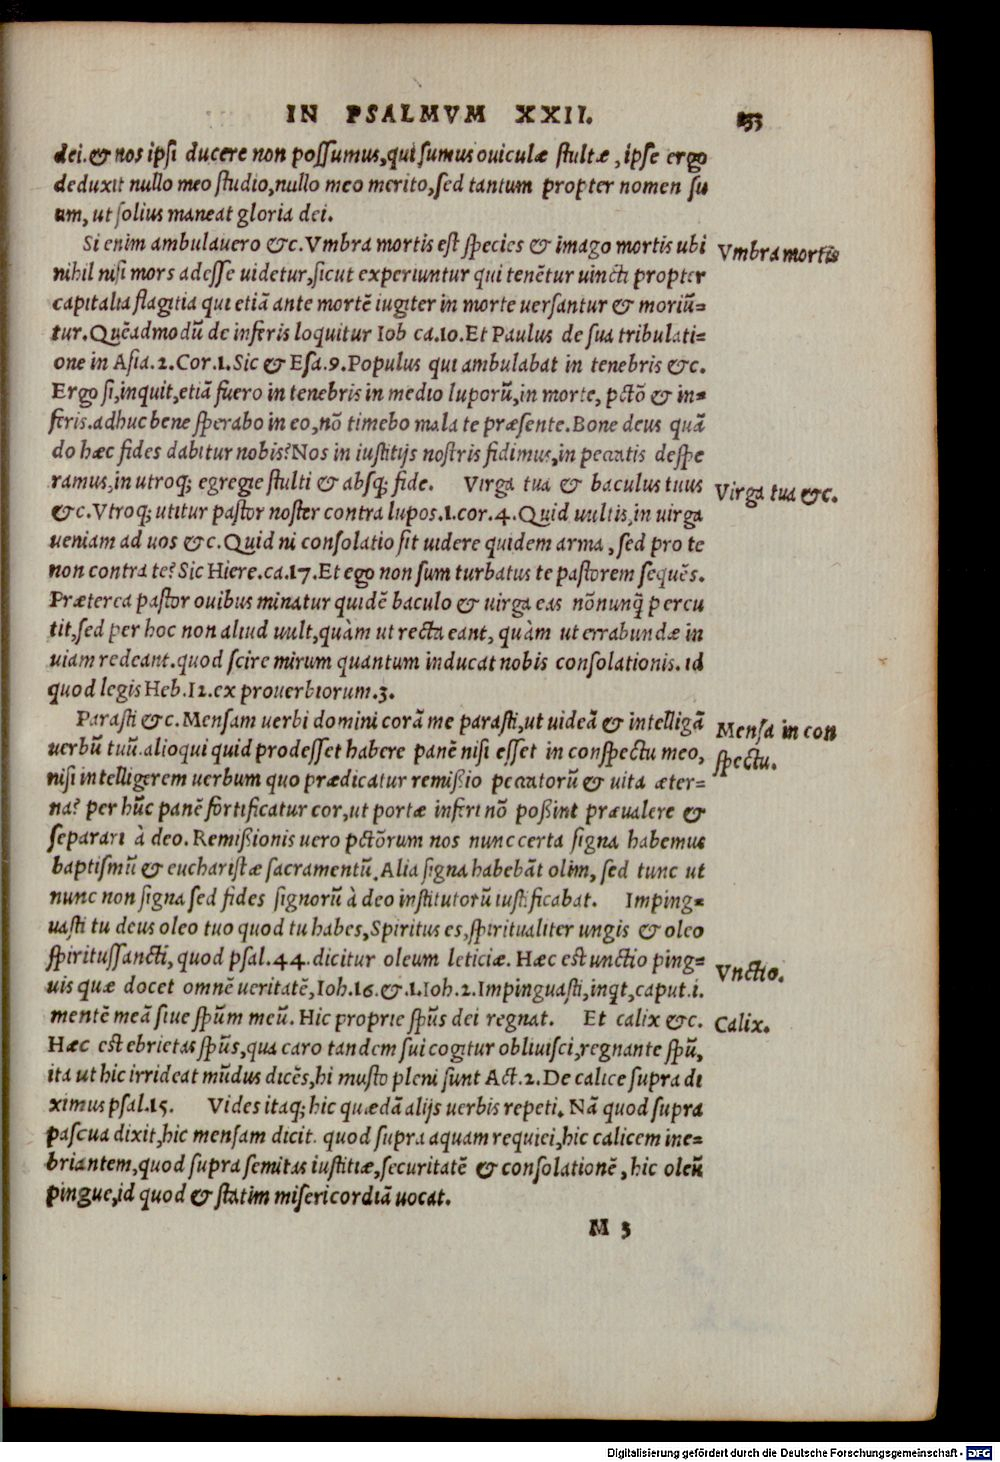 IN PSALMVM XXII.
dei. & nos ipsi ducere non possumus, qui sumus ouiculæ stultæ, ipse ergo
deduxit nullo meo studio, nullo meo merito, sed tantum propter nomen su
um, ut solius maneat gloria dei.
Si enim ambulauero &c. Vmbra mortis est species & imago mortis ubi
Vmbra mortis
nihil nisi mors adesse uidetur, sicut experiuntur qui tenētur uincti propter
capitalia flagitia qui etiā ante mortē iugiter in morte uersantur & moriū=
tur. Quēadmodū de inferis loquitur Iob ca.10. Et Paulus de sua tribulati=
one in Asia.2.Cor.1. Sic & Esa.9. Populus qui ambulabat in tenebris &c.
Ergo si, inquit, etiā fuero in tenebris in medio luporū, in morte, pctō & in=
feris. adhuc bene sperabo in eo, nō timebo mala te præsente. Bone deus quā
do hæc fides dabitur nobis? Nos in iustitijs nostris fidimus, in peccatis despe
ramus, in utroq; egregie stulti & absq; fide. Virga tua & baculus tuus
Virga tua &c.
&c. Vtroq; utitur pastor noster contra lupos.1.cor.4. Quid uultis, in uirga
ueniam ad uos &c. Quid ni consolatio sit uidere quidem arma, sed pro te
non contra te? Sic Hiere.ca.17. Et ego non sum turbatus te pastorem sequēs.
Præterea pastor ouibus minatur quidē baculo & uirga eas nōnunq̄ percu
tit, sed per hoc non aliud uult, quàm ut recta eant, quàm ut errabundæ in
uiam redeant. quod scire mirum quantum inducat nobis consolationis. id
quod legis Heb.12. ex prouerbiorum.3.
Parasti &c. Mensam uerbi domini corā me parasti, ut uideā & intelligā
Mensa in con
spectu.
uerbū tuū. alioqui quid prodesset habere panē nisi esset in conspectu meo,
nisi intelligerem uerbum quo prædicatur remißio peccatorū & uita æter=
na? per hūc panē fortificatur cor, ut portæ inferi nō poßint præualere &
separari à deo. Remißionis uero pctōrum nos nunc certa signa habemus
baptismū & eucharistæ sacramentū. Alia signa habebāt olim, sed tunc ut
nunc non signa sed fides signorū à deo institutorū iustificabat. Imping=
uasti tu deus oleo tuo quod tu habes, Spiritus es, spiritualiter ungis & oleo
spiritussancti, quod psal.44. dicitur oleum leticiæ. Hæc est unctio ping=
Vnctio.
uis quæ docet omnē ueritatē, Ioh.16. & .1.Ioh.2. Impinguasti, inqt, caput.i.
mentē meā siue spūm meū. Hic proprie spūs dei regnat. Et calix &c.
Calix.
Hæc est ebrietas spūs, qua caro tandem sui cogitur obliuisci, regnante spū,
ita ut hic irrideat mūdus dicēs, hi musto pleni sunt Act.2. De calice supra di
ximus psal.15. Vides itaq; hic quædā alijs uerbis repeti. Nā quod supra
pascua dixit, hic mensam dicit. quod supra aquam requiei, hic calicem ine=
briantem, quod supra semitas iustitiæ, securitatē & consolationē, hic oleū
pingue, id quod & statim misericordiā uocat.
M 3
Digitalisierung gefördert durch die Deutsche Forschungsgemeinschaft - DFG